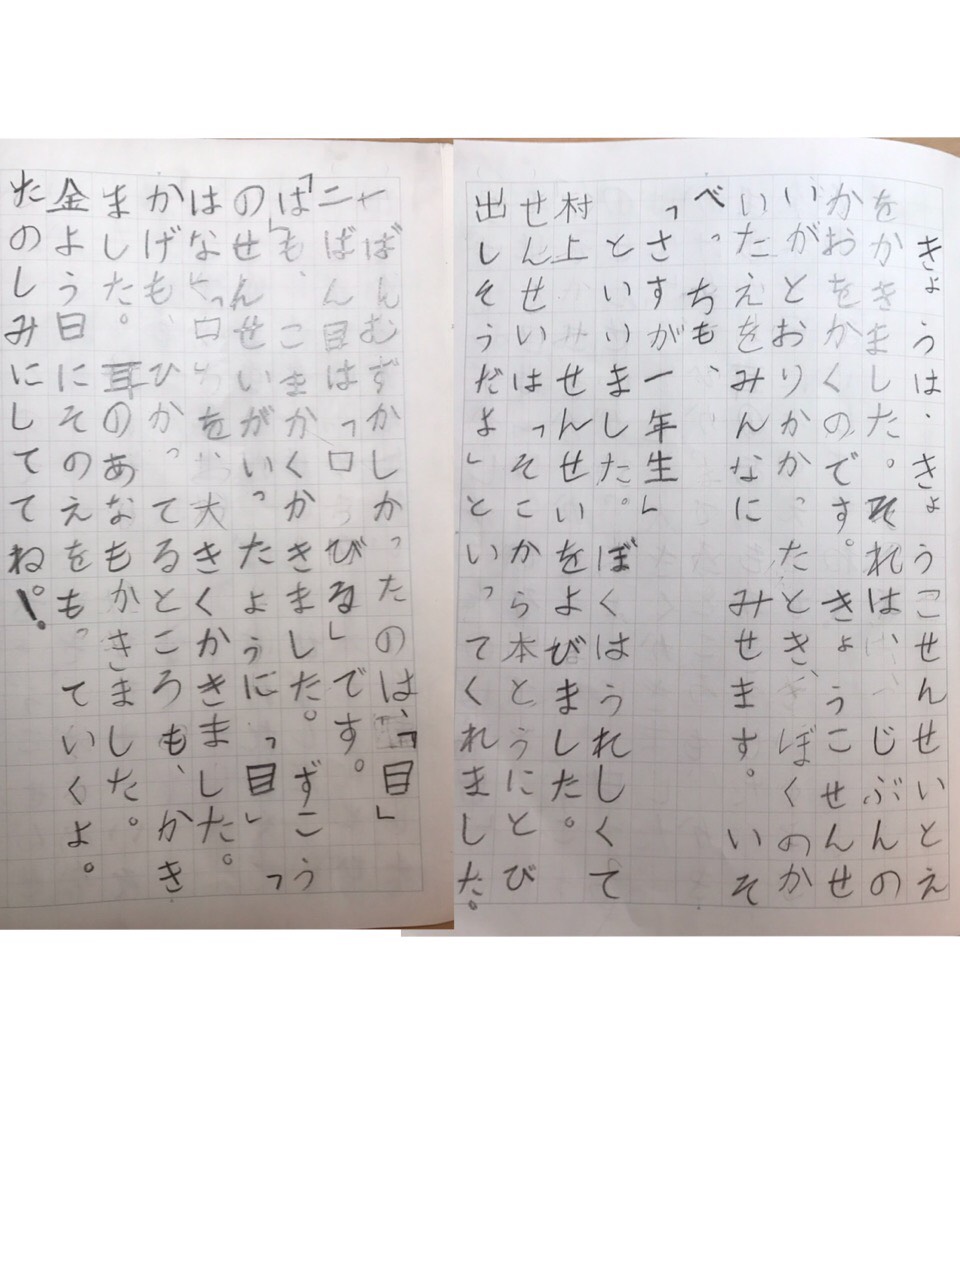 きょうは、きょうこせんせいとえ
をかきました。それは、じぶんの
かおをかくのです。きょうこせんせ
いがとおりかかったとき、ぼくのか
いたえをみんなにみせます。いそ
べっちも、
「さすが一年生」
といいました。ぼくはうれしくて
村上せんせいをよびました。
せんせいは「そこから本とうにとび
出しそうだよ」といってくれました。
一ばんむずかしかったのは、「目」
二ばん目は「口びる」です。
「は」も、こまかくかきました。ずこう
のせんせいがいったように「目」「
はな」「口」を、大きくかきました。
かげも、ひかってるところも、かき
ました。耳のあなもかきました。
金よう日にそのえをもっていくよ。
たのしみにしててね!